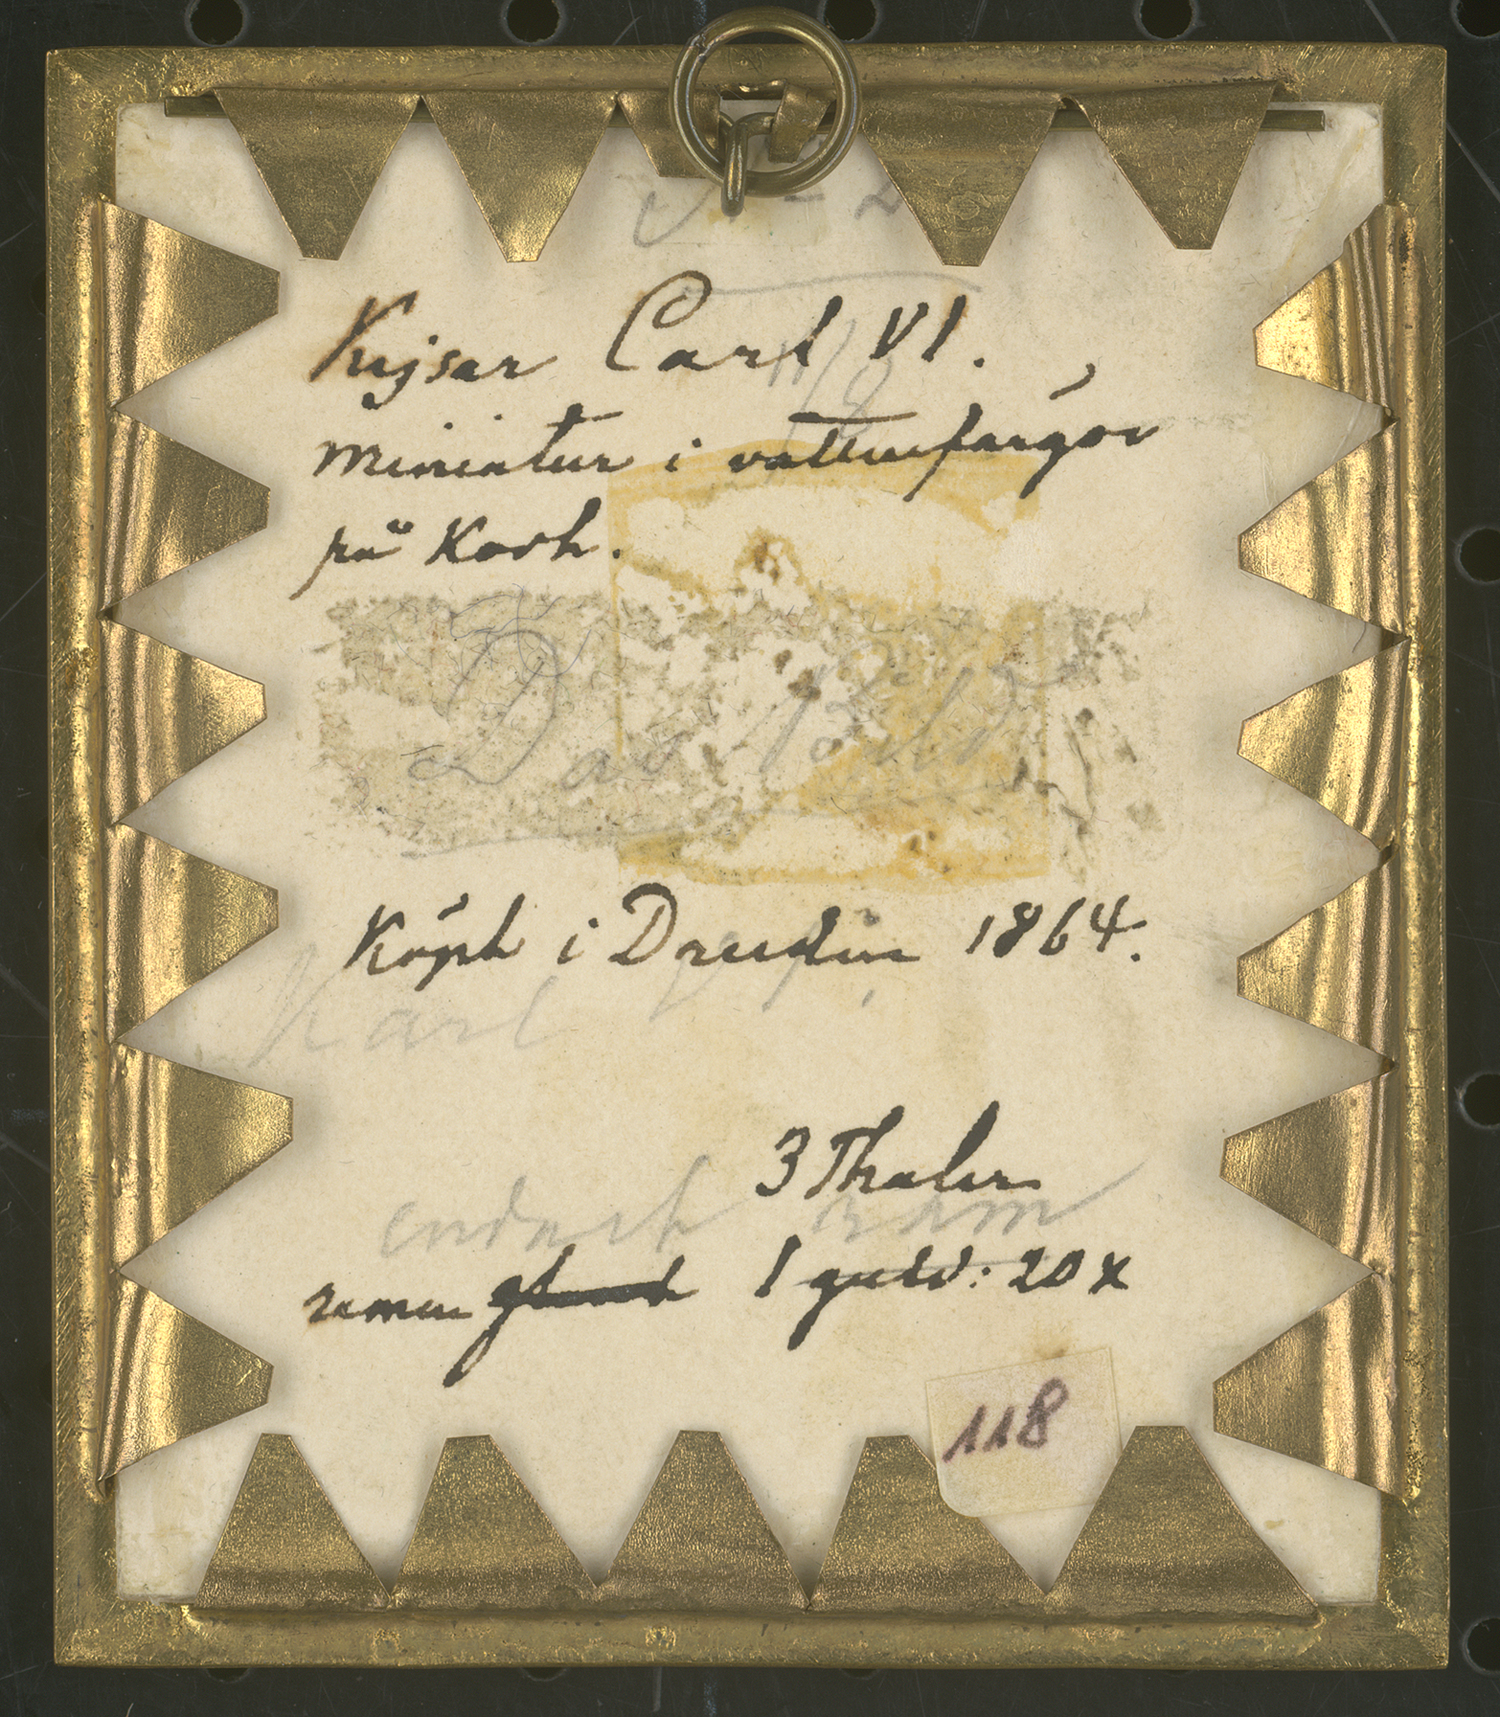 Kejsar Carl VI.
miniatur i vattenfärger
på Kork.
Das Bild
Köpt i Dresden 1864.
Karl
3 Thaler
ram
ramen 1 guld: 20 x
118